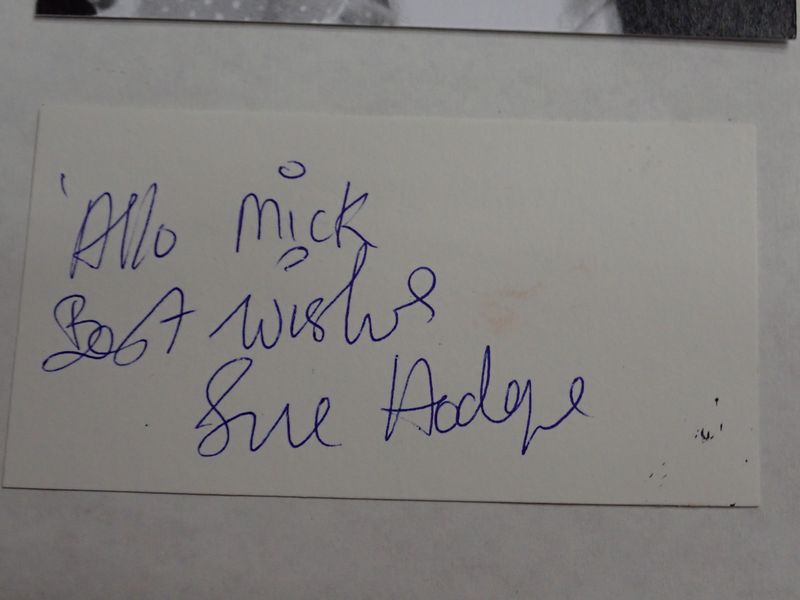 'Allo Mick
Best Wishes
Sue Hodge